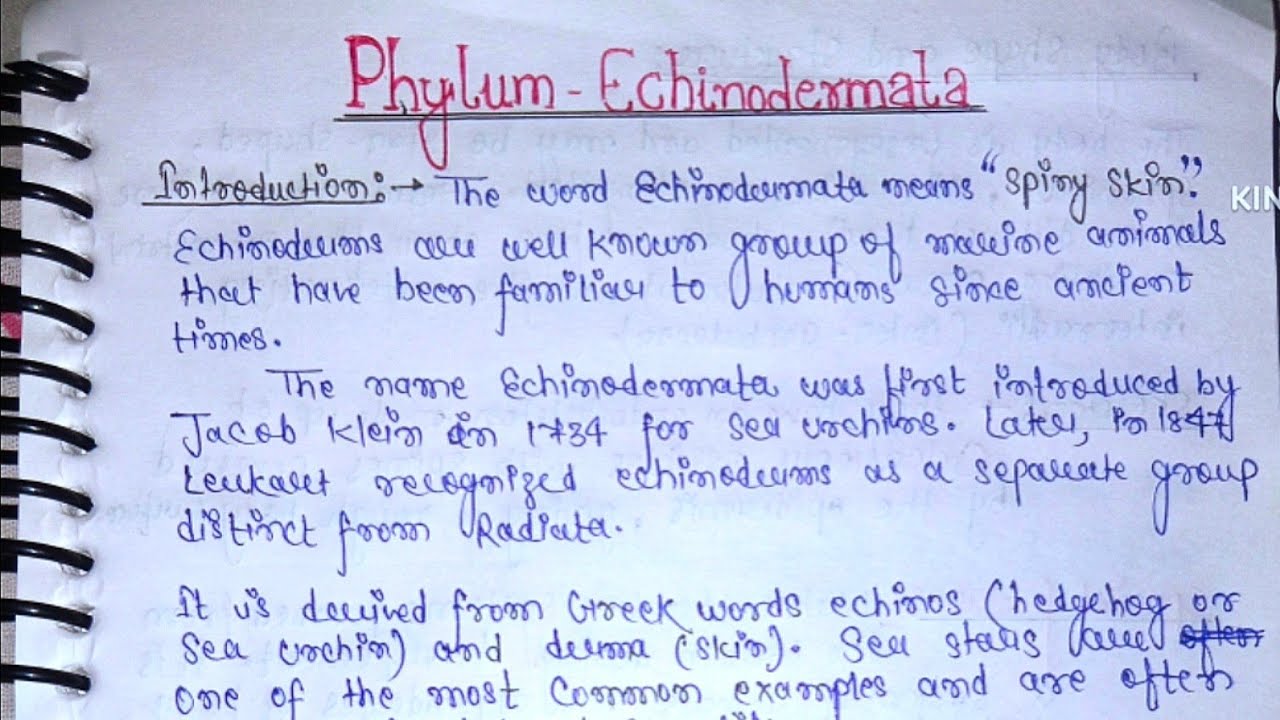 Phylum - Echinodermata
Introduction:→ The word Echinodermata means "Spiny Skin."
KIN
Echinoderms are well known group of marine animals
that have been familiar to humans since ancient
times.
The name Echinodermata was first introduced by
Jacob Klein in 1734 for sea urchins. Later, in 1847
Leukart recognized echinoderms as a separate group
distinct from Radiata.
It is derived from Greek words echinos (hedgehog or
Sea urchin) and derma (skin). Sea stars are often
one of the most common examples and are often